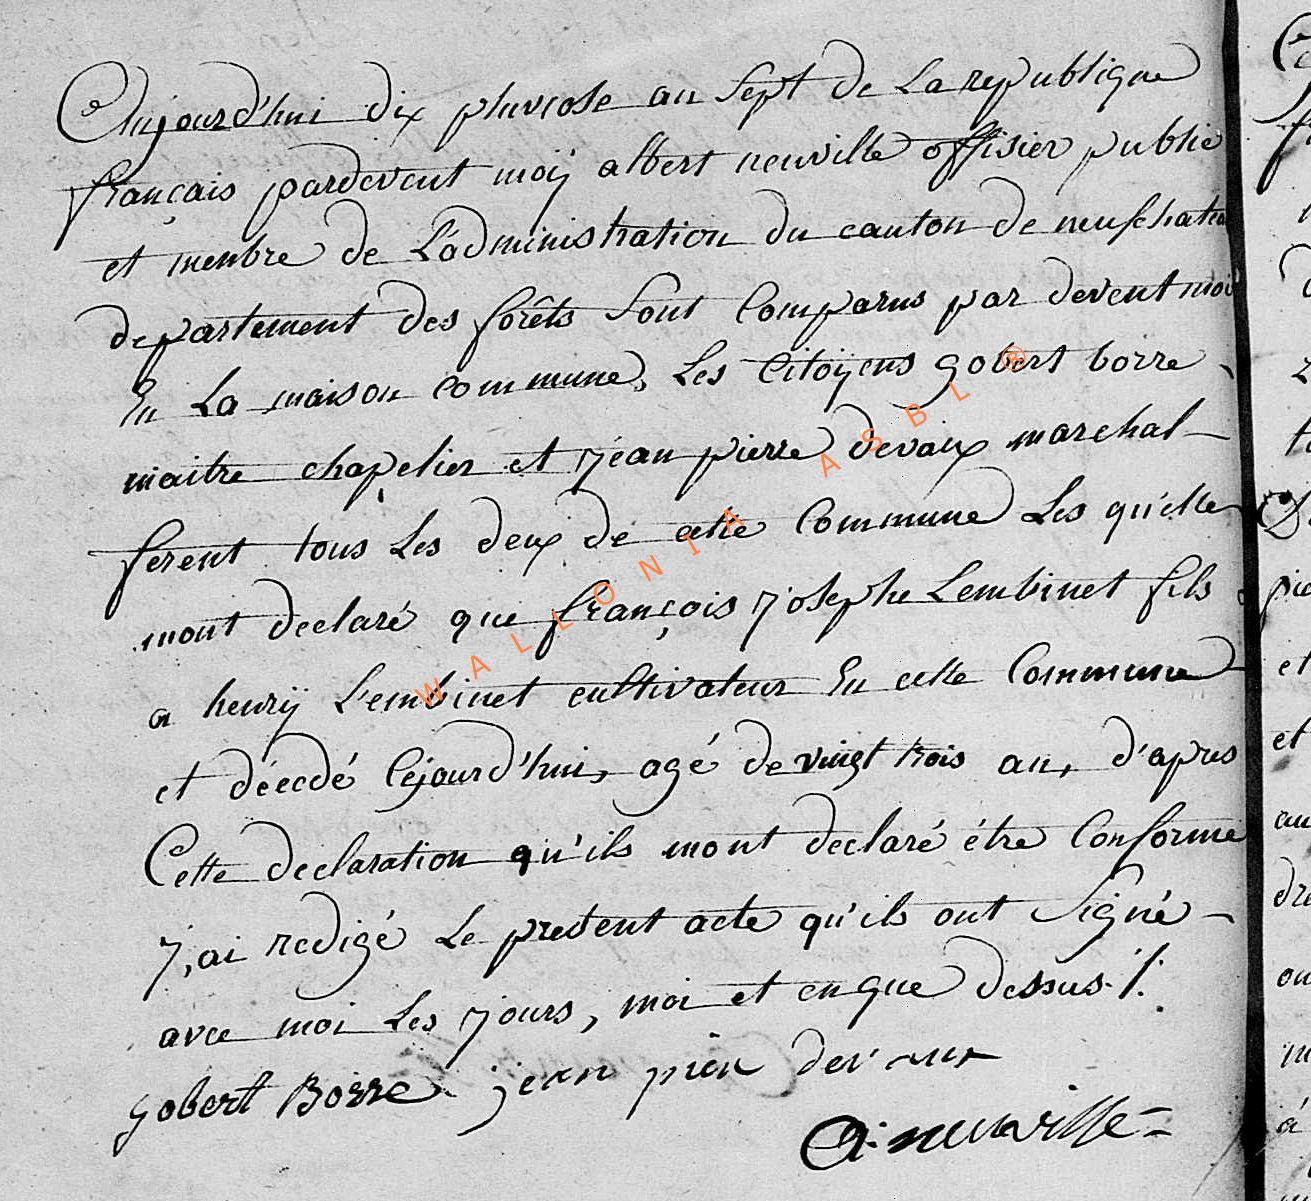 Aujourd'hui dix pluviose an Sept de La republique
français pardevent moÿ albert neuville offisier public
et menbre de L'administration du canton de neufchateau
departement des forêts Sont Comparus par devent moi
En La maison commune, Les Citoyens gobert borre
maitre chapelier et jéan pierre devaux marchal
ferent tous Les deux de cette Commune Les qu'elle
mont declaré que françois josephe Lembinet fils
a henrÿ Lembinet cultivateur En cette Commune
et déecdé Cejourd'hui, agé de vingt trois an, d'apres
Cette declaration qu'ils mont declaré étre Conforme
j'ai redigé Le present acte qu'ils ont Signé
avec moi Les jours, moi et en que dessus ./.
gobert Borre jean pier devaux
A: neuville
WALLONIA ASBL ®